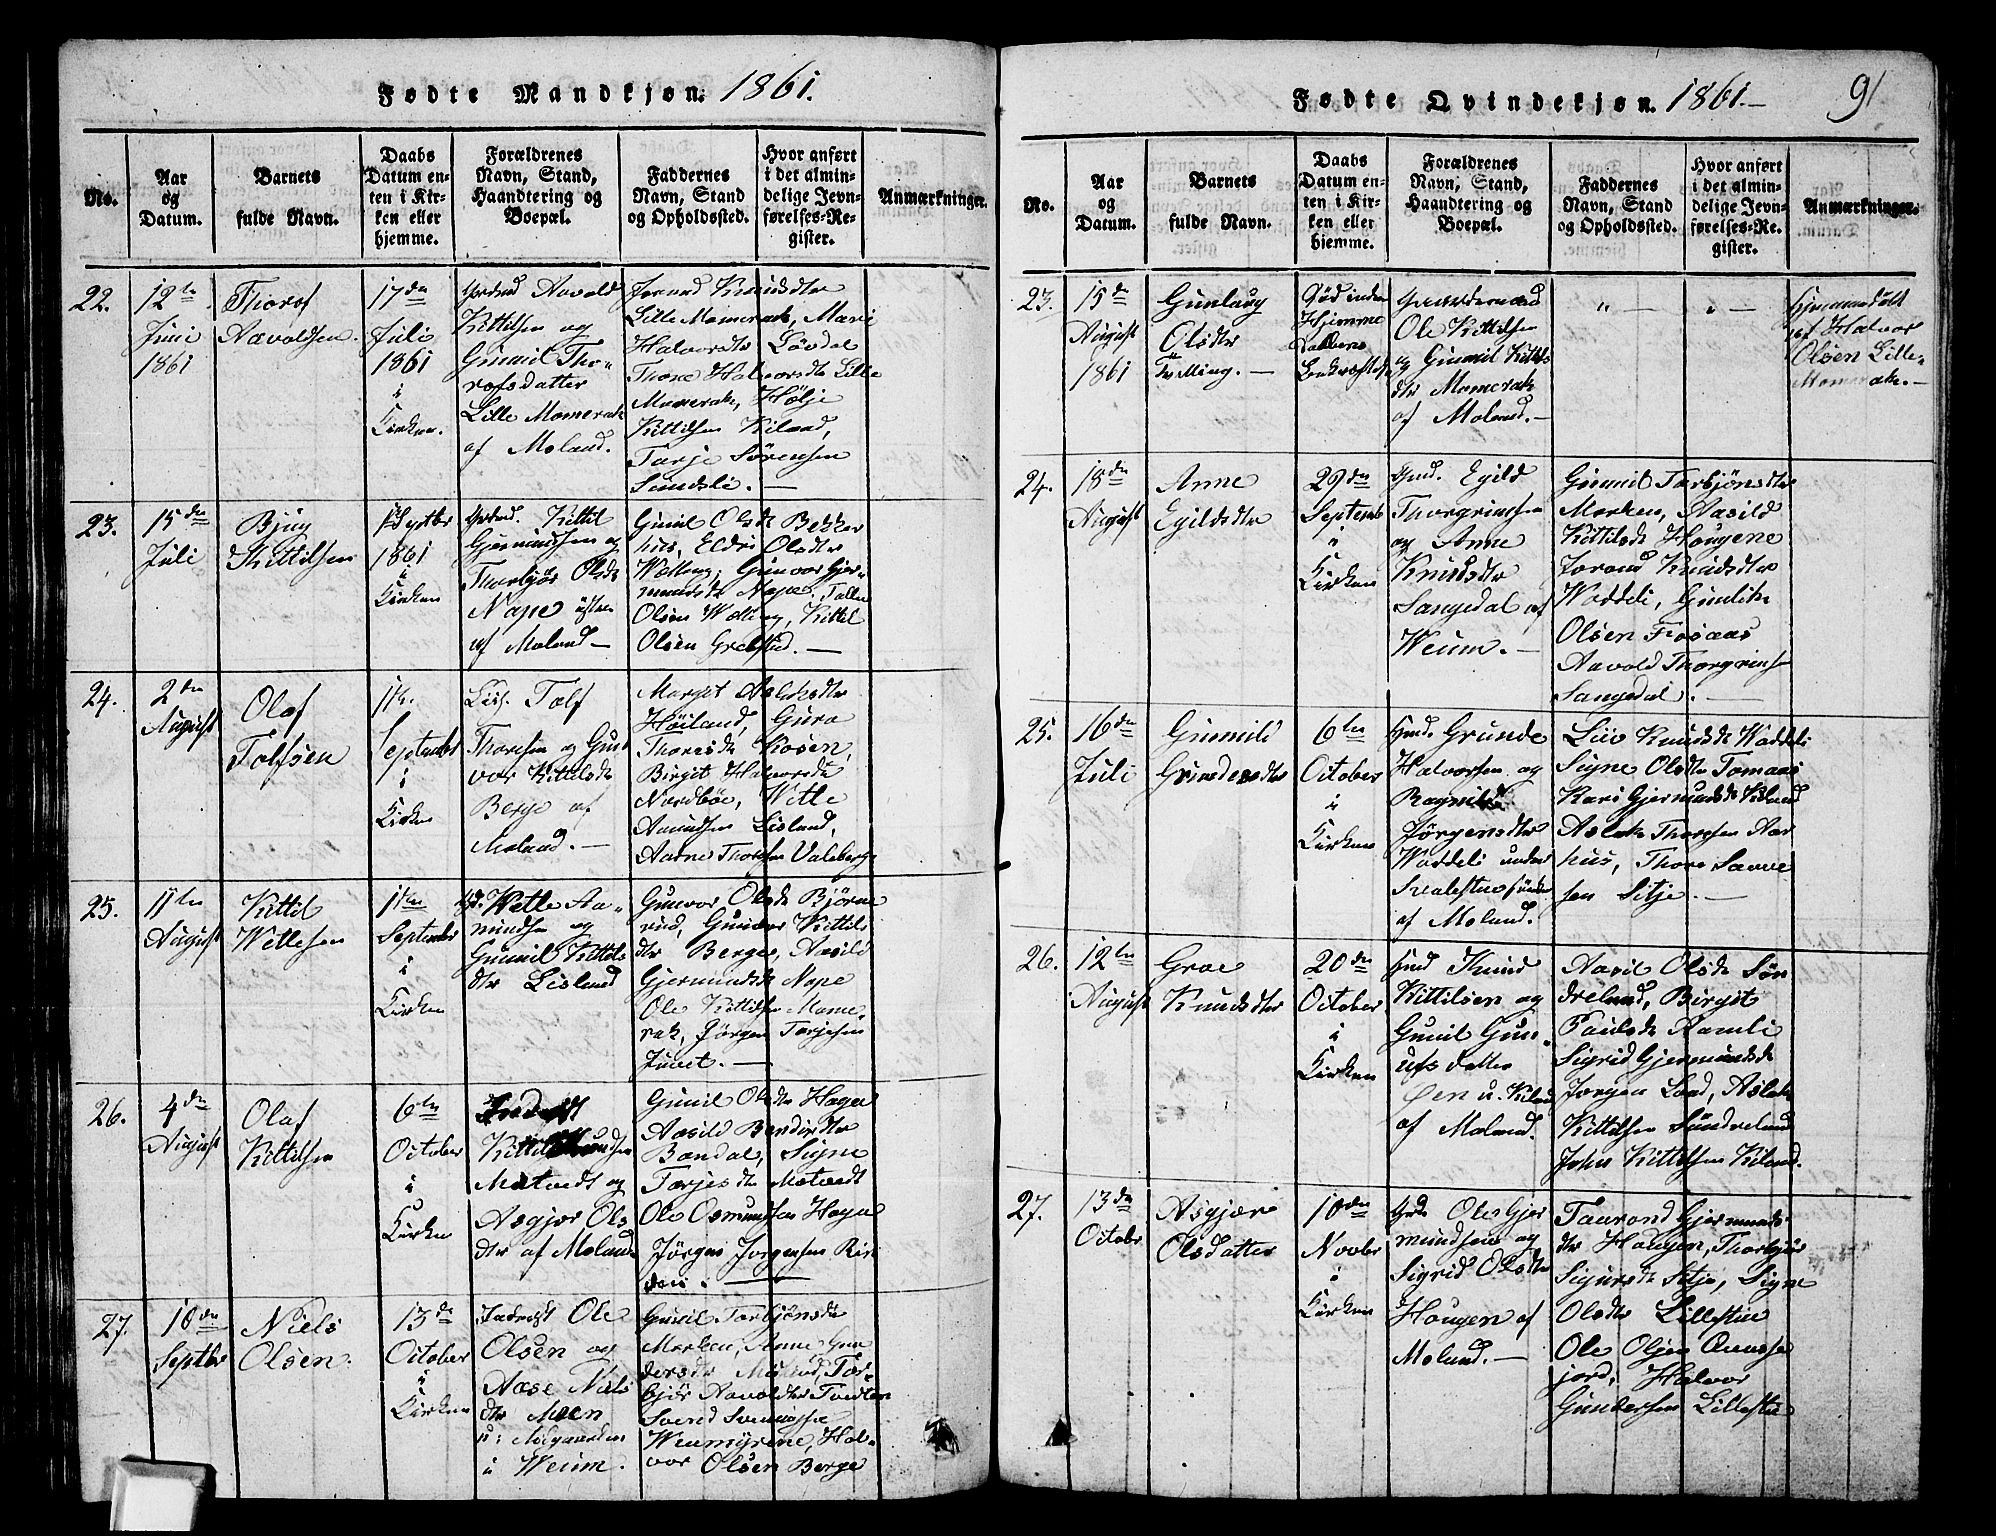 Fødte Mandkjøn. 1861.
No.
Aar
og
Datum.
Barnets
fulde Navn.
Daabs
Datum en-
ten i Kir-
ken eller
hjemme.
Forældrenes
Navn, Stand,
Haandtering og
Boepæl.
Faddernes
Navn, Stand
og Opholdssted.
Hvor anført
i det almin-
delige Jevn-
førelses-Re-
gister.
Anmærkninger.
22.
12te
Juni
1861
Thorof
Aavoldsen.
17de
Juli
1861
i
Kirken.
Aavold
Kittilsen og
Gunnil Tho-
rofsdatter
Lille Momerak
af Moland.
Jorand Knudsdtr
Lille Momerak, Mari
Halvorsdtr Lövdal
Thone Halvorsdtr Lille
Momerak, Hölje
Kittilsen Kiland,
Tarje Sörensen
Sundsli. —
23.
15de
Juli
Bjug
Kittilsen
Septbr
1861
i
Kirken
Kittil
Gjermundsen og
Thorbjør Olsdt
Nape
af Moland —
Gunil Olsdt Bekker
hus, Eldri Olsdtr
Wetting, Gunvor Gjer-
mundsdtr Nape,
Olsen Wetting, Kittil
Olsen Grebstad. —
24.
2den
August
Olaf
Tolfsen
September
i
Kirken
Tolf
Thoresen og Gun
vor Kittilsdt
Berge af
Moland. —
Margit Aslaksdtr
Höiland, Guro
Thoresdt Rosen,
Birgit Halvorsdt
Nordböe, Wetle
Amundsen Lisland,
Aarne Thorsen Valeberg
25.
11te
August
Kittil
Wetlesen
September
i
Kirken
Wetle Aa-
mundsen og
Gunnil Kittils
dtr Lisland
Gunvor Olsdt Björne
rud, Gunder Kittils
dtr Berge, Aasild
Gjermundsdt Nape
Ole Kittilsen Mome-
rak, Jörgen Tarjesen
Juvet. —
26.
4de
August
Olaf
Kittilsen
6te
October
i
Kirken
Kittil
Motvedt og
Asgjær Ols
dtr af Moland
Gunil Olsdtr Hagen
Aasild Bendixdtr
Bandal, Signe
Tarjesdtr Motvedt
Ole Osmundsen Hagen
Jörgen Jorgensen
27.
10de
Septbr
Niels
Olsen.
13de
October
i
Kirken
Ole
Olsen og
Aase Niels
dtr Moen
i Weum.
Gunil Torbjönsdt
Morken, Anne Gun
dersdt
björ Aavoldsdtr Tvedten
Weumyrene, Hal-
vor Olsen Berge
Fødte Qvindekjøn. 1861. —
91
No.
Aar
og
Datum.
Barnets
fulde Navn.
Daabs
Datum en-
ten i Kir-
ken eller
hjemme.
Forældrenes
Navn, Stand,
Haandtering og
Boepæl.
Faddernes
Navn, Stand
og Opholdssted.
Hvor anført
i det almin-
delige Jevn-
førelses-Re-
gister.
Anmærkninger.
23.
15de
August
1861
Gunlaug
Olsdtr
Tvilling. —
Död inden
Hjemme
Ole Kittilsen
og Gunnil Kittils
dtr Momerak
af Moland. —
" —
" —
Hjemmedöbt
af Halvor
Olsen Lille-
Momerak. —
24.
18de
August
Anne
Egildsdtr
29de
Septemb
i
Kirken
Egild
Thorgrimsen
og Anne
Knudsdtr
Sangedal af
Weum. —
Gunnil Torbjönsdtr
Morken, Aasild
Kittilsdt Hougene
Jorand Knudsdtr
Waddeli, Gunlik
Olsen Fosaas
Aavold Thorgrims
Sangedal. —
25.
16de
Juli
Gunnild
Grundesdtr
6te
October
i
Kirken
Grunde
Halvorsen og
Ragnild
Jörgensdtr
Waddeli under
af Moland.
Liv Knudsdt Waddeli
Signe Olsdtr Tomaas
Kari Gjermundsdt Kiland
Aslak Thoresen Aar
hus, Thore Saave
sen Sitje. —
26.
12te
August
Groe
Knudsdtr
20de
October
i
Kirken
Knud
Kittilsen og
Gunil Gun-
ufs datter
Öen u. Kiland
af Moland.
Aasil Olsdt Sön
dreland, Birgit
Paulsdt Aamli
Sigrid Gjermundsdt
Jorgen Lad, Aslak
Kittilsen Sundreland
John Kittilsen Kiland.
27.
13de
October
Asgjære
Olsdatter
10de
Novbr
i
Kirken
Ole Gjer
mundsen og
Sigrid Olsdtr
Hougen af
Moland. —
Taarond Gjermunds-
dtr Hougen, Thorbjör
Sigursdt Sitje, Signe
Olsdtr Lillestue
Ole Olsen
jord, Halvor
Gundersen Lillestue